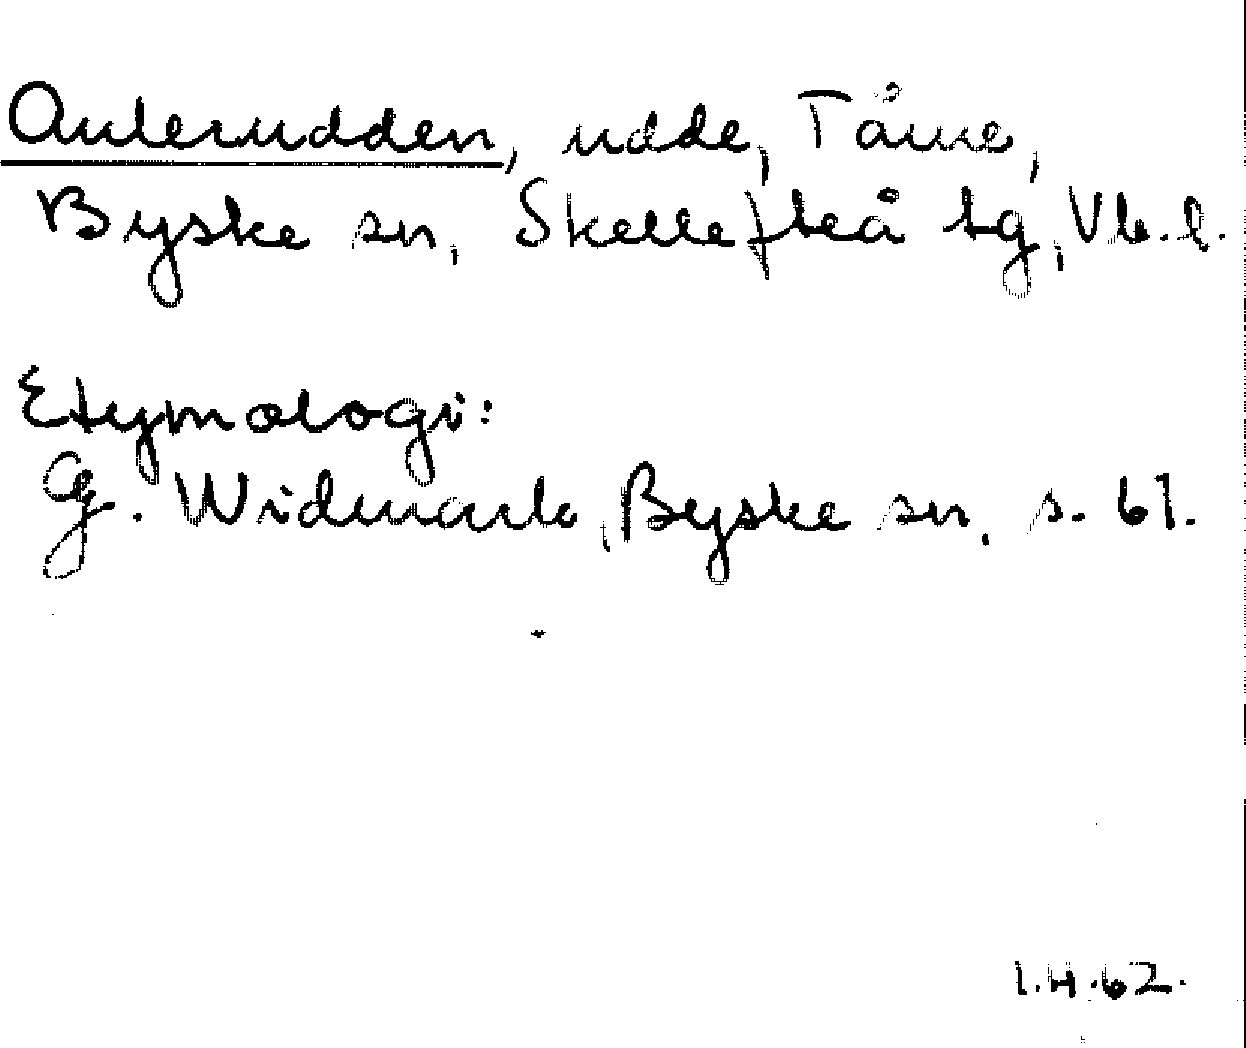 Aulerudden, udde, Tåme,
Byske sn, Skellefteå tg, Vb. l.
Etymologi:
G. Widmark, Byske sn, s. 61.
I.H.62.